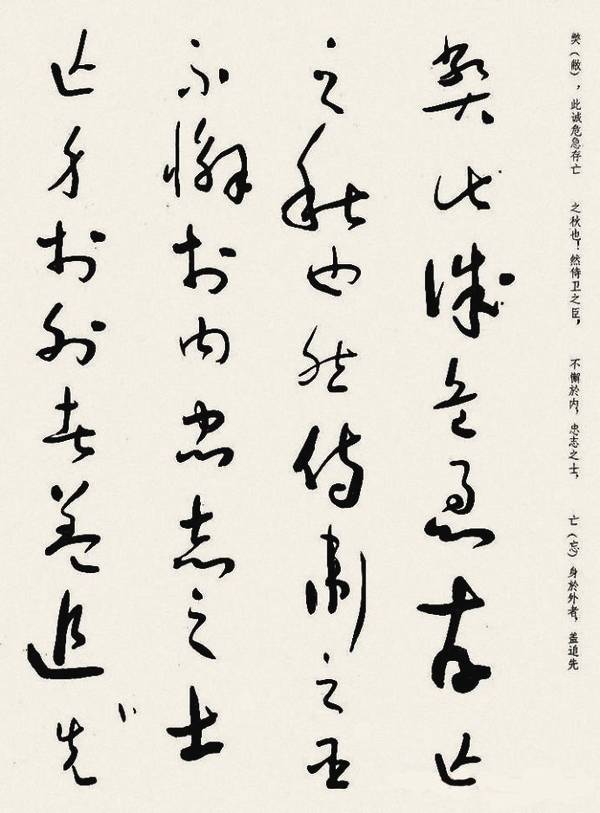 樊（敝），此诚危急存亡 之秋也！然侍卫之臣， 不懈於内，忠志之士， 亡（忘）身於外者，盖追先
獘此誠危急存亡
之秋也然侍衛之臣
不懈於内忠志之士
亡身於外者蓋追先